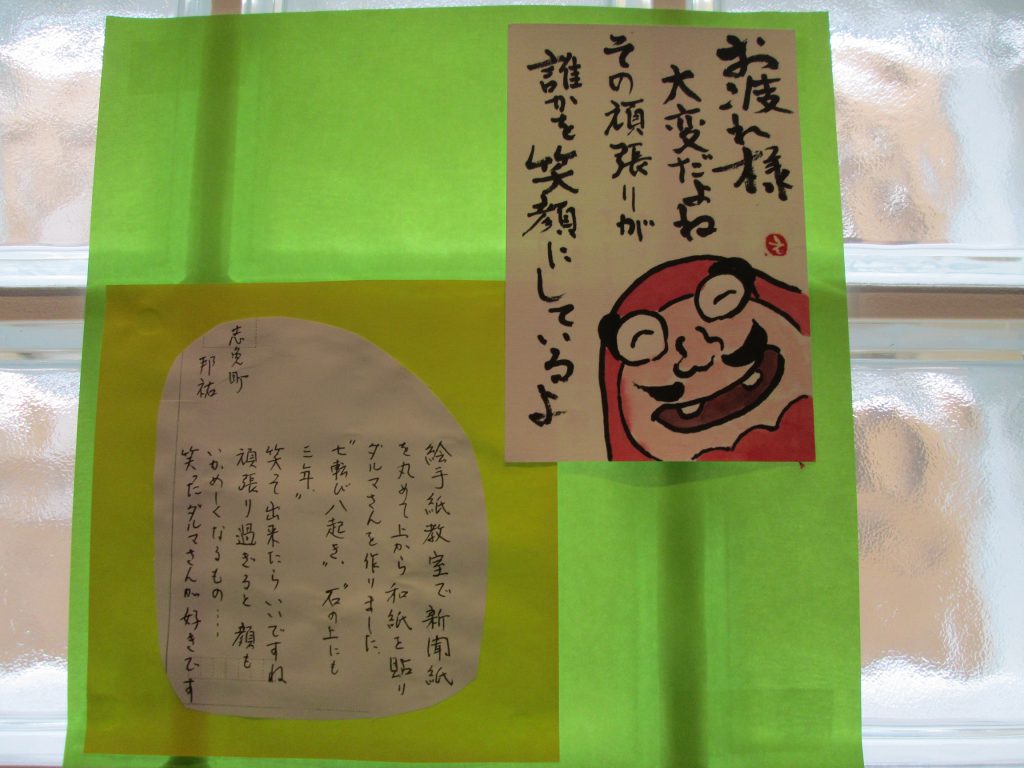 お疲れ様
大変だよね
その頑張りが
誰かを笑顔にしているよ
絵手紙教室で新聞紙
を丸めて上から和紙を貼り
ダルマさんを作りました。
"七転び八起き、""石の上にも
三年、"
笑って出来たらいいですね
頑張り過ぎると顔も
いかめしくなるもの・・・
笑ったダルマさんが好きです
志免町
邦祐